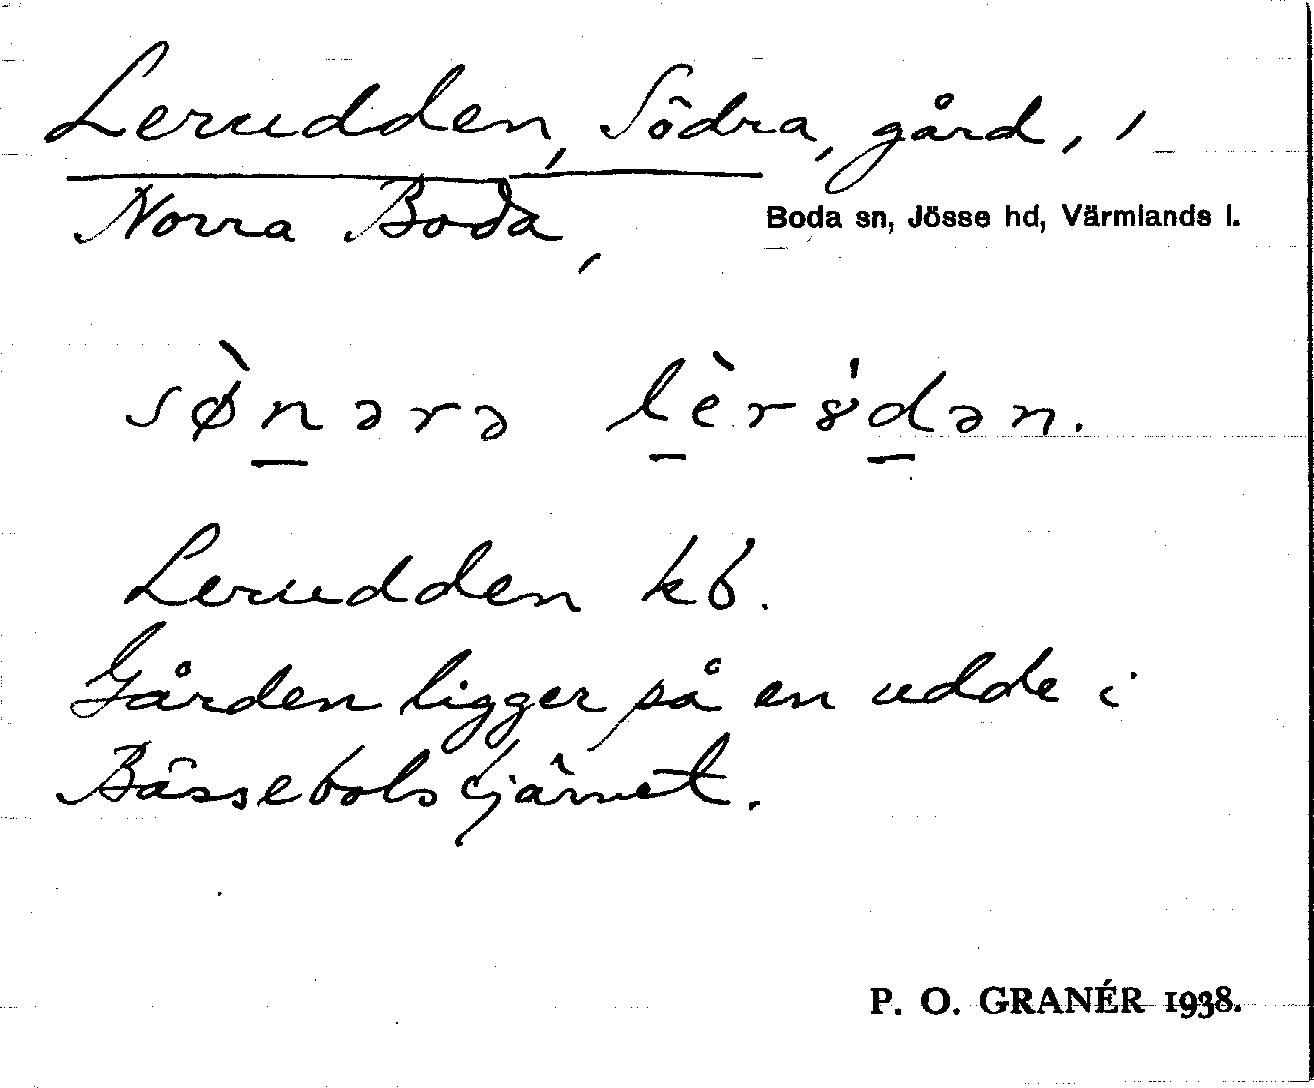 Lerudden, Södra, gård, i
Norra Boda,
Boda sn, Jösse hd, Värmlands l.
sø̀n̲ərə l̲èr8̍d̲ən.
Lerudden kb.
Gården ligger på en udde i
Bässebolstjärnet.
P. O. GRANÉR 1938.